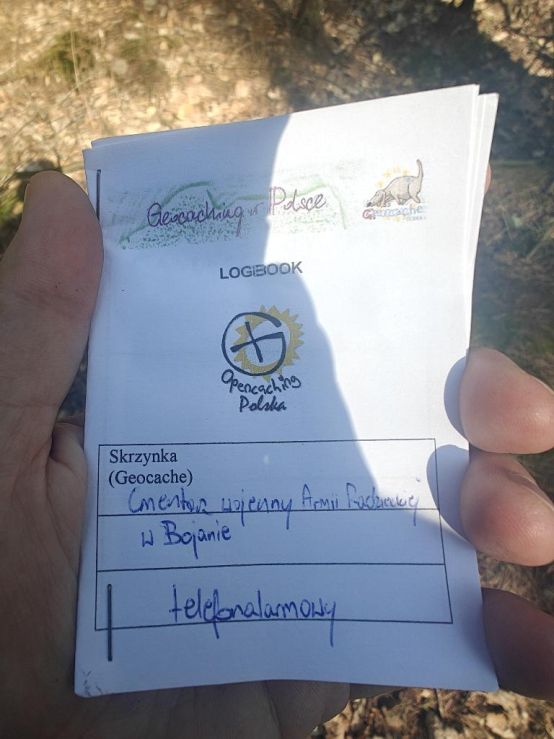 Geocaching w Polsce
Geocache
LOGBOOK
Opencaching
Polska
Skrzynka
(Geocache)
Cmentarz wojenny Armii Radzieckiej
w Bojanie
telefonalarmowy